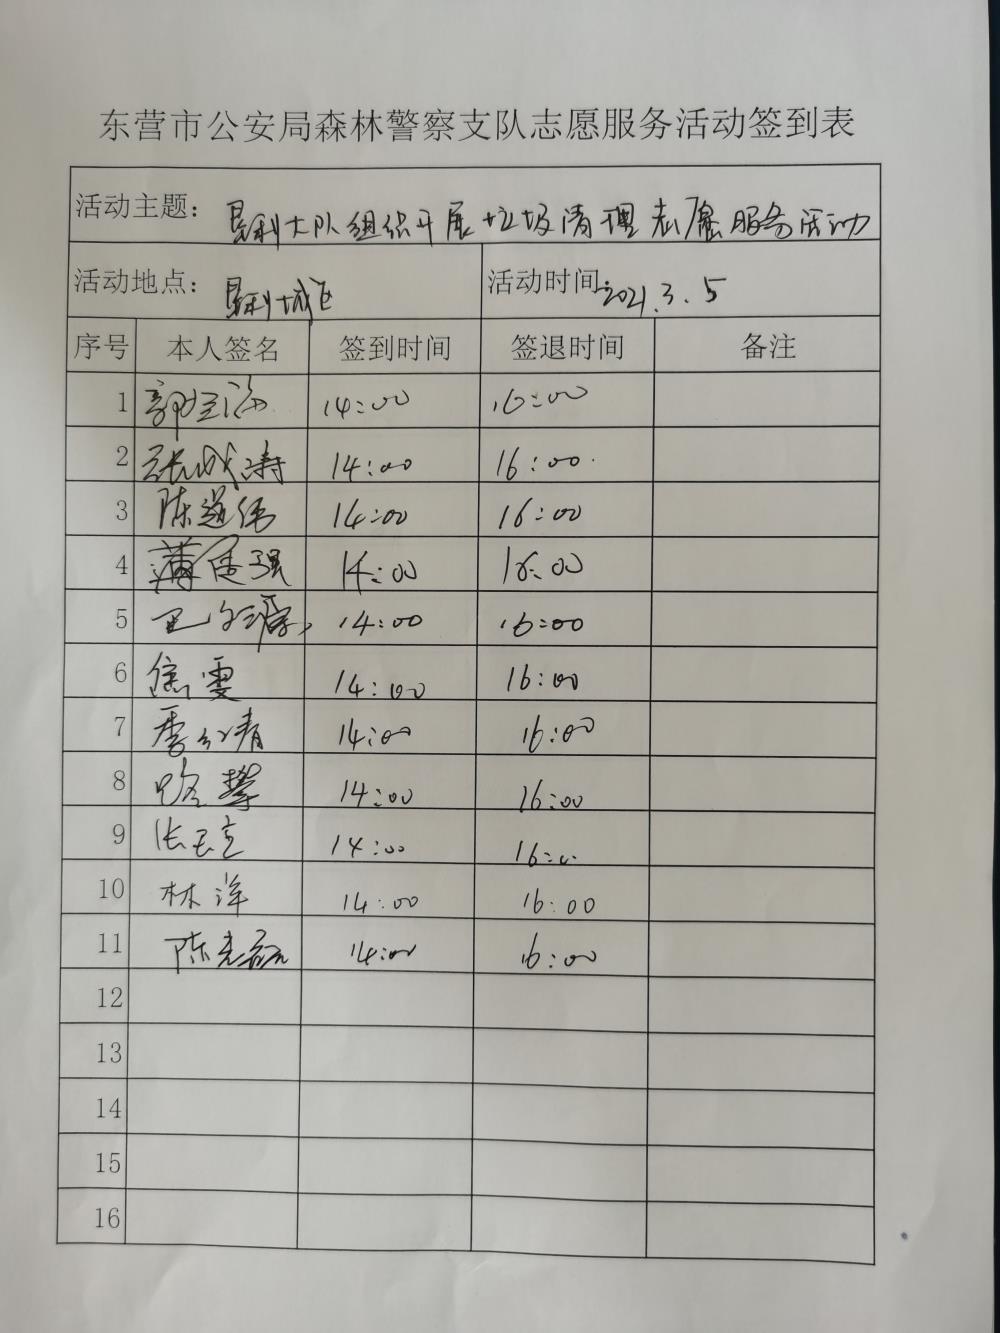 东营市公安局森林警察支队志愿服务活动签到表
活动主题：垦利大队组织开展垃圾清理志愿服务活动
活动地点：垦利城区 活动时间：2021.3.5
序号 本人签名 签到时间 签退时间 备注
1 14:00 16:00
2 张成涛 14:00 16:00
3 陈道伟 14:00 16:00
4 14:00 16:00
5 14:00 16:00
6 焦雯 14:00 16:00
7 14:00 16:00
8 14:00 16:00
9 14:00 16:00
10 林洋 14:00 16:00
11 14:00 16:00
12
13
14
15
16